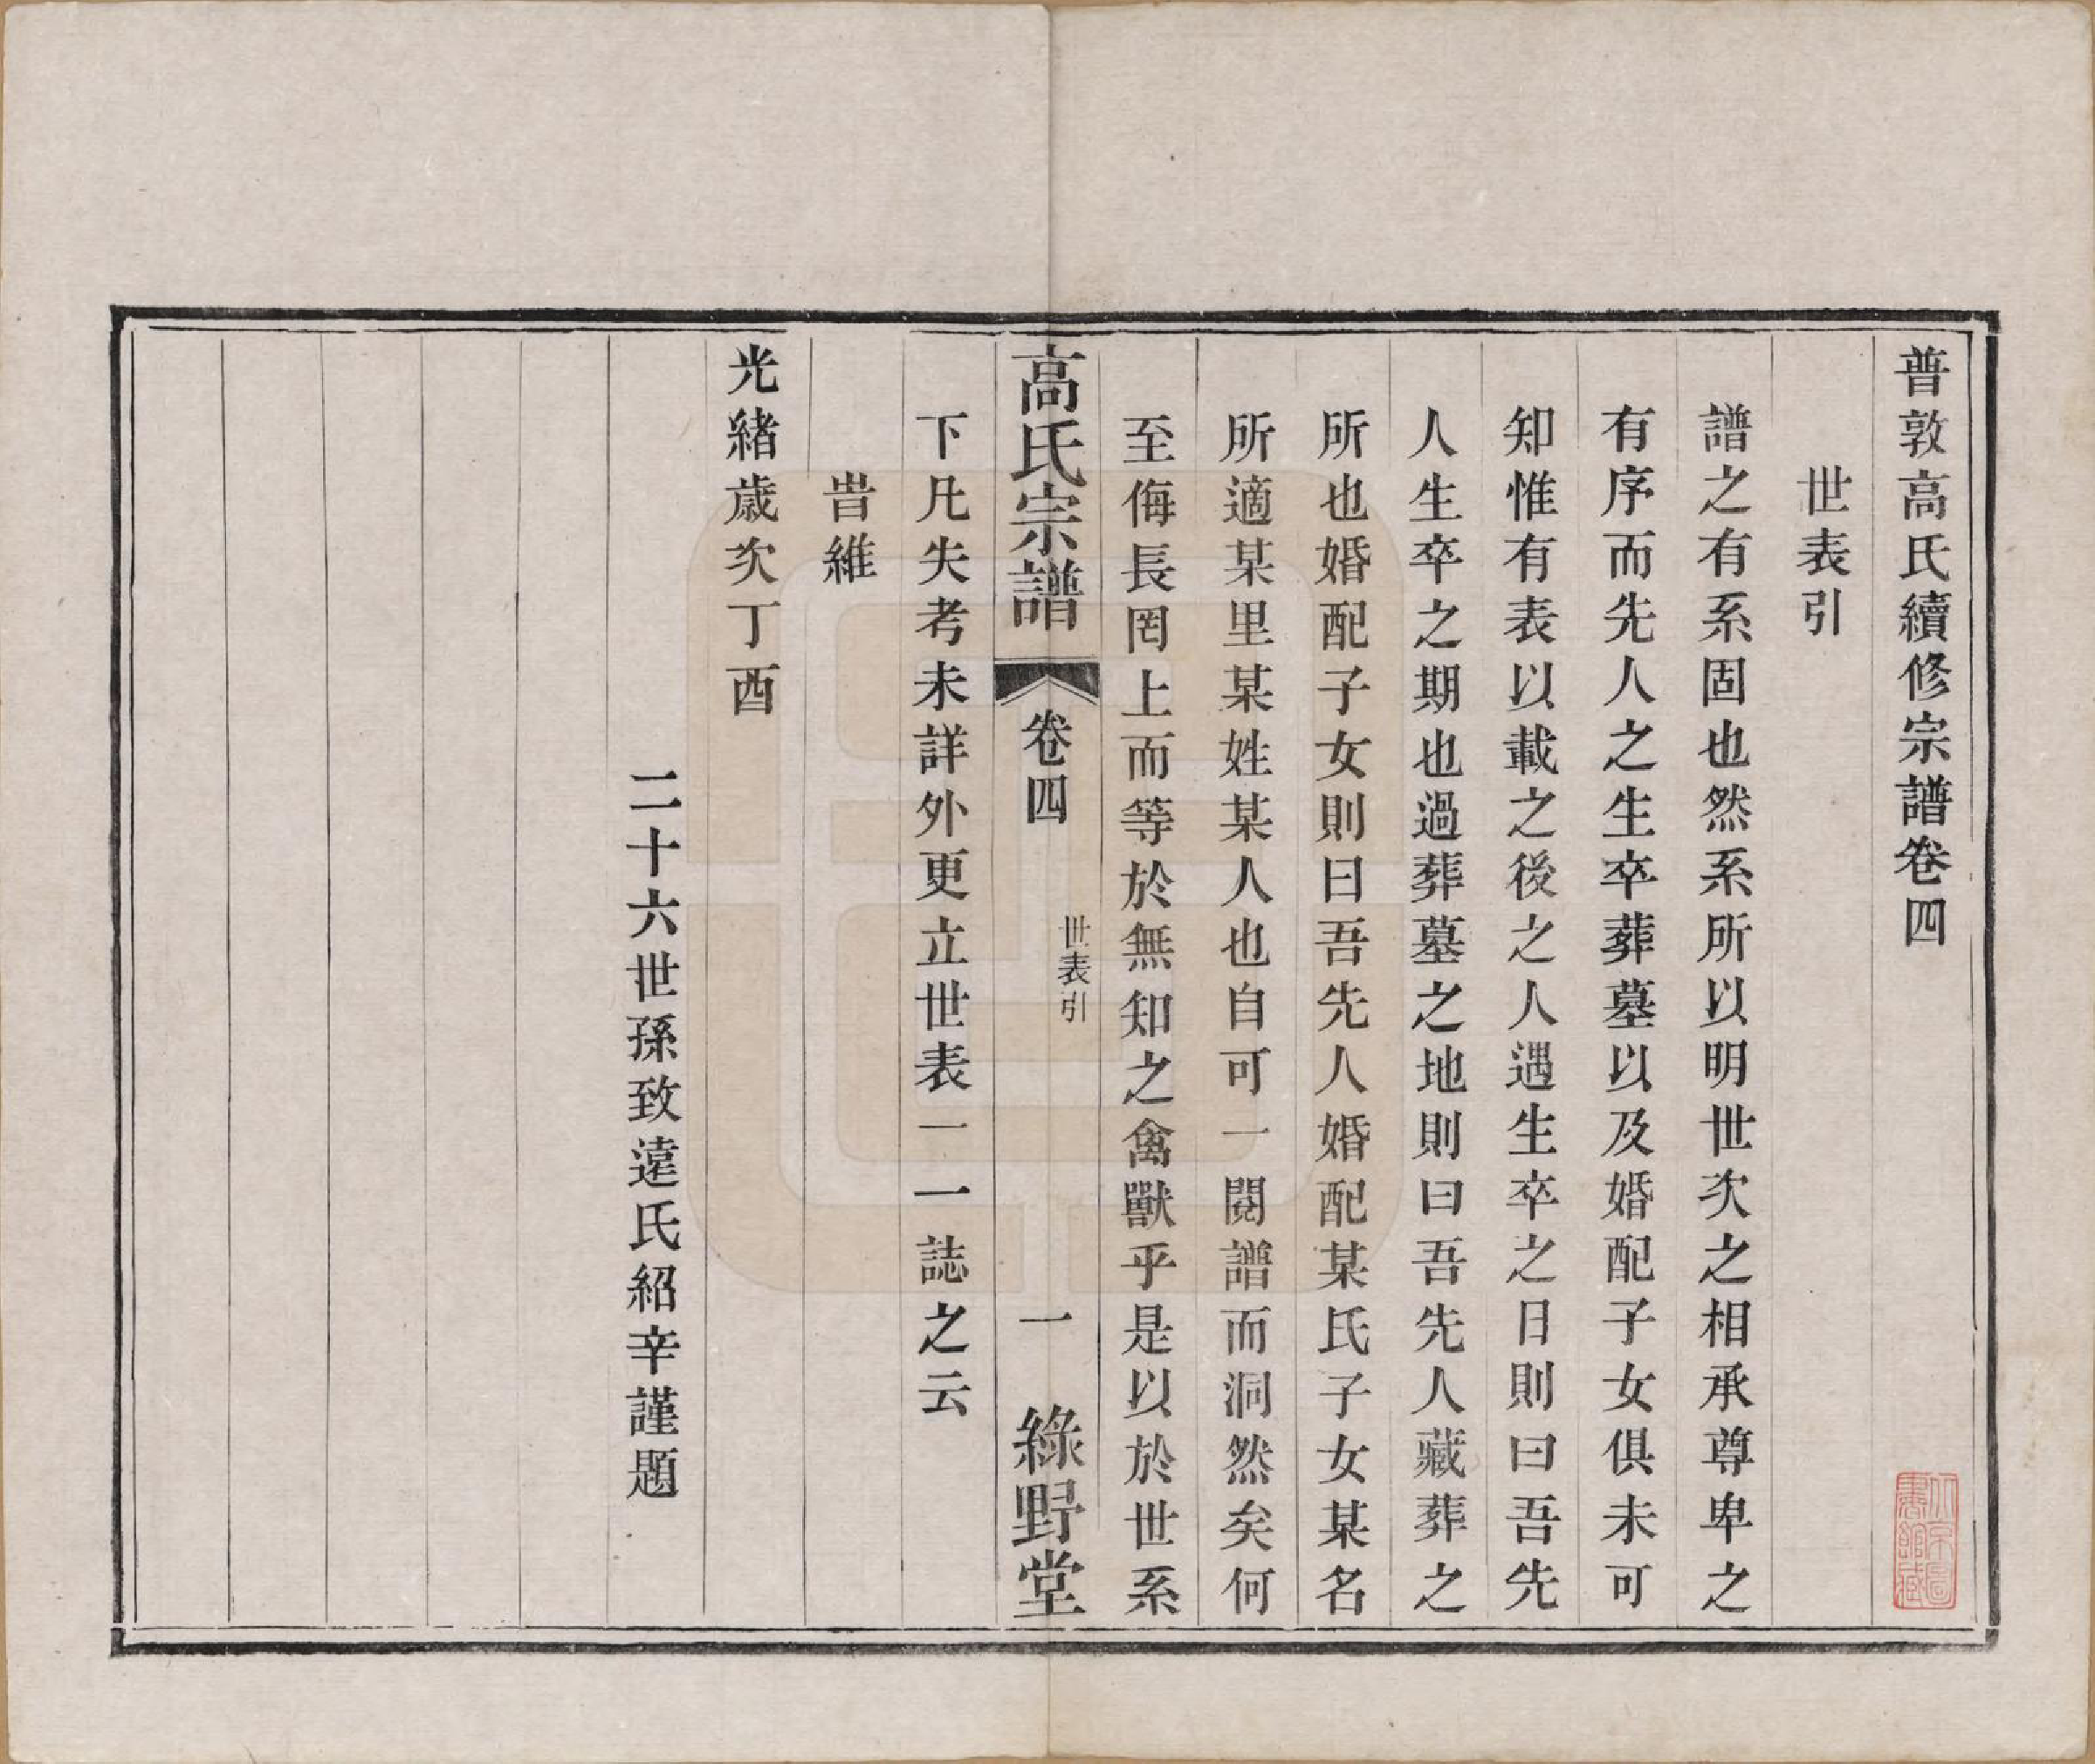 普敦高氏續修宗譜卷四
世表引
譜之有系固也然系所以明世次之相承尊卑之
有序而先人之生卒葬墓以及婚配子女俱未可
知惟有表以載之後之人遇生卒之日則曰吾先
人生卒之期也過葬墓之地則曰吾先人藏葬之
所也婚配子女則曰吾先人婚配某氏子女某名
所適某里某姓某人也自可一閱譜而洞然矣何
至侮長罔上而等於無知之禽獸乎是以於世系
高氏宗譜
卷四
世表引
一
綠野堂
下凡失考未詳外更立世表一一誌之云
旹維
光緒歲次丁酉
二十六世孫致遠氏紹辛謹題